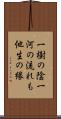 一樹の陰一
河の流れも
他生の縁